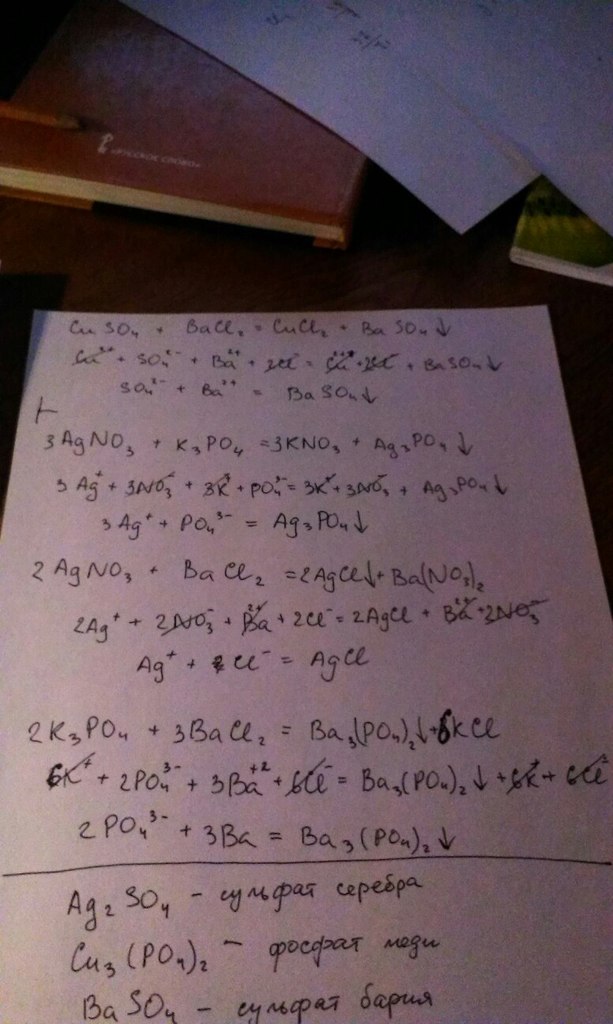 «РУССКОЕ СЛОВО»
CuSO₄ + BaCl₂ = CuCl₂ + BaSO₄↓
Cu²⁺ + SO₄²⁻ + Ba²⁺ + 2Cl⁻ = Cu²⁺ + 2Cl⁻ + BaSO₄↓
SO₄²⁻ + Ba²⁺ = BaSO₄↓
3AgNO₃ + K₃PO₄ = 3KNO₃ + Ag₃PO₄↓
3Ag⁺ + 3NO₃⁻ + 3K⁺ + PO₄³⁻ = 3K⁺ + 3NO₃⁻ + Ag₃PO₄↓
3Ag⁺ + PO₄³⁻ = Ag₃PO₄↓
2AgNO₃ + BaCl₂ = 2AgCl↓ + Ba(NO₃)₂
2Ag⁺ + 2NO₃⁻ + Ba²⁺ + 2Cl⁻ = 2AgCl + Ba²⁺ + 2NO₃⁻
Ag⁺ + Cl⁻ = AgCl
2K₃PO₄ + 3BaCl₂ = Ba₃(PO₄)₂↓ + 6KCl
6K⁺ + 2PO₄³⁻ + 3Ba⁺² + 6Cl⁻ = Ba₃(PO₄)₂↓ + 6K⁺ + 6Cl⁻
2PO₄³⁻ + 3Ba = Ba₃(PO₄)₂↓
Ag₂SO₄ - сульфат серебра
Cu₃(PO₄)₂ - фосфат меди
BaSO₄ - сульфат бария